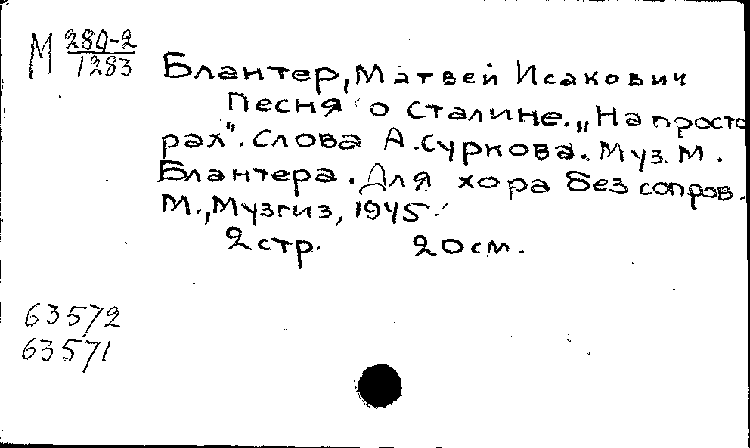 М 280-2
1283
Блантер, Матвей Исакович
Песня о Сталине. „На просто
рах". Слова А. Суркова. Муз. М.
Блантера. Для хора без сопров.
М., Музгиз, 1945.
2 стр. 20 см.
63572
63571